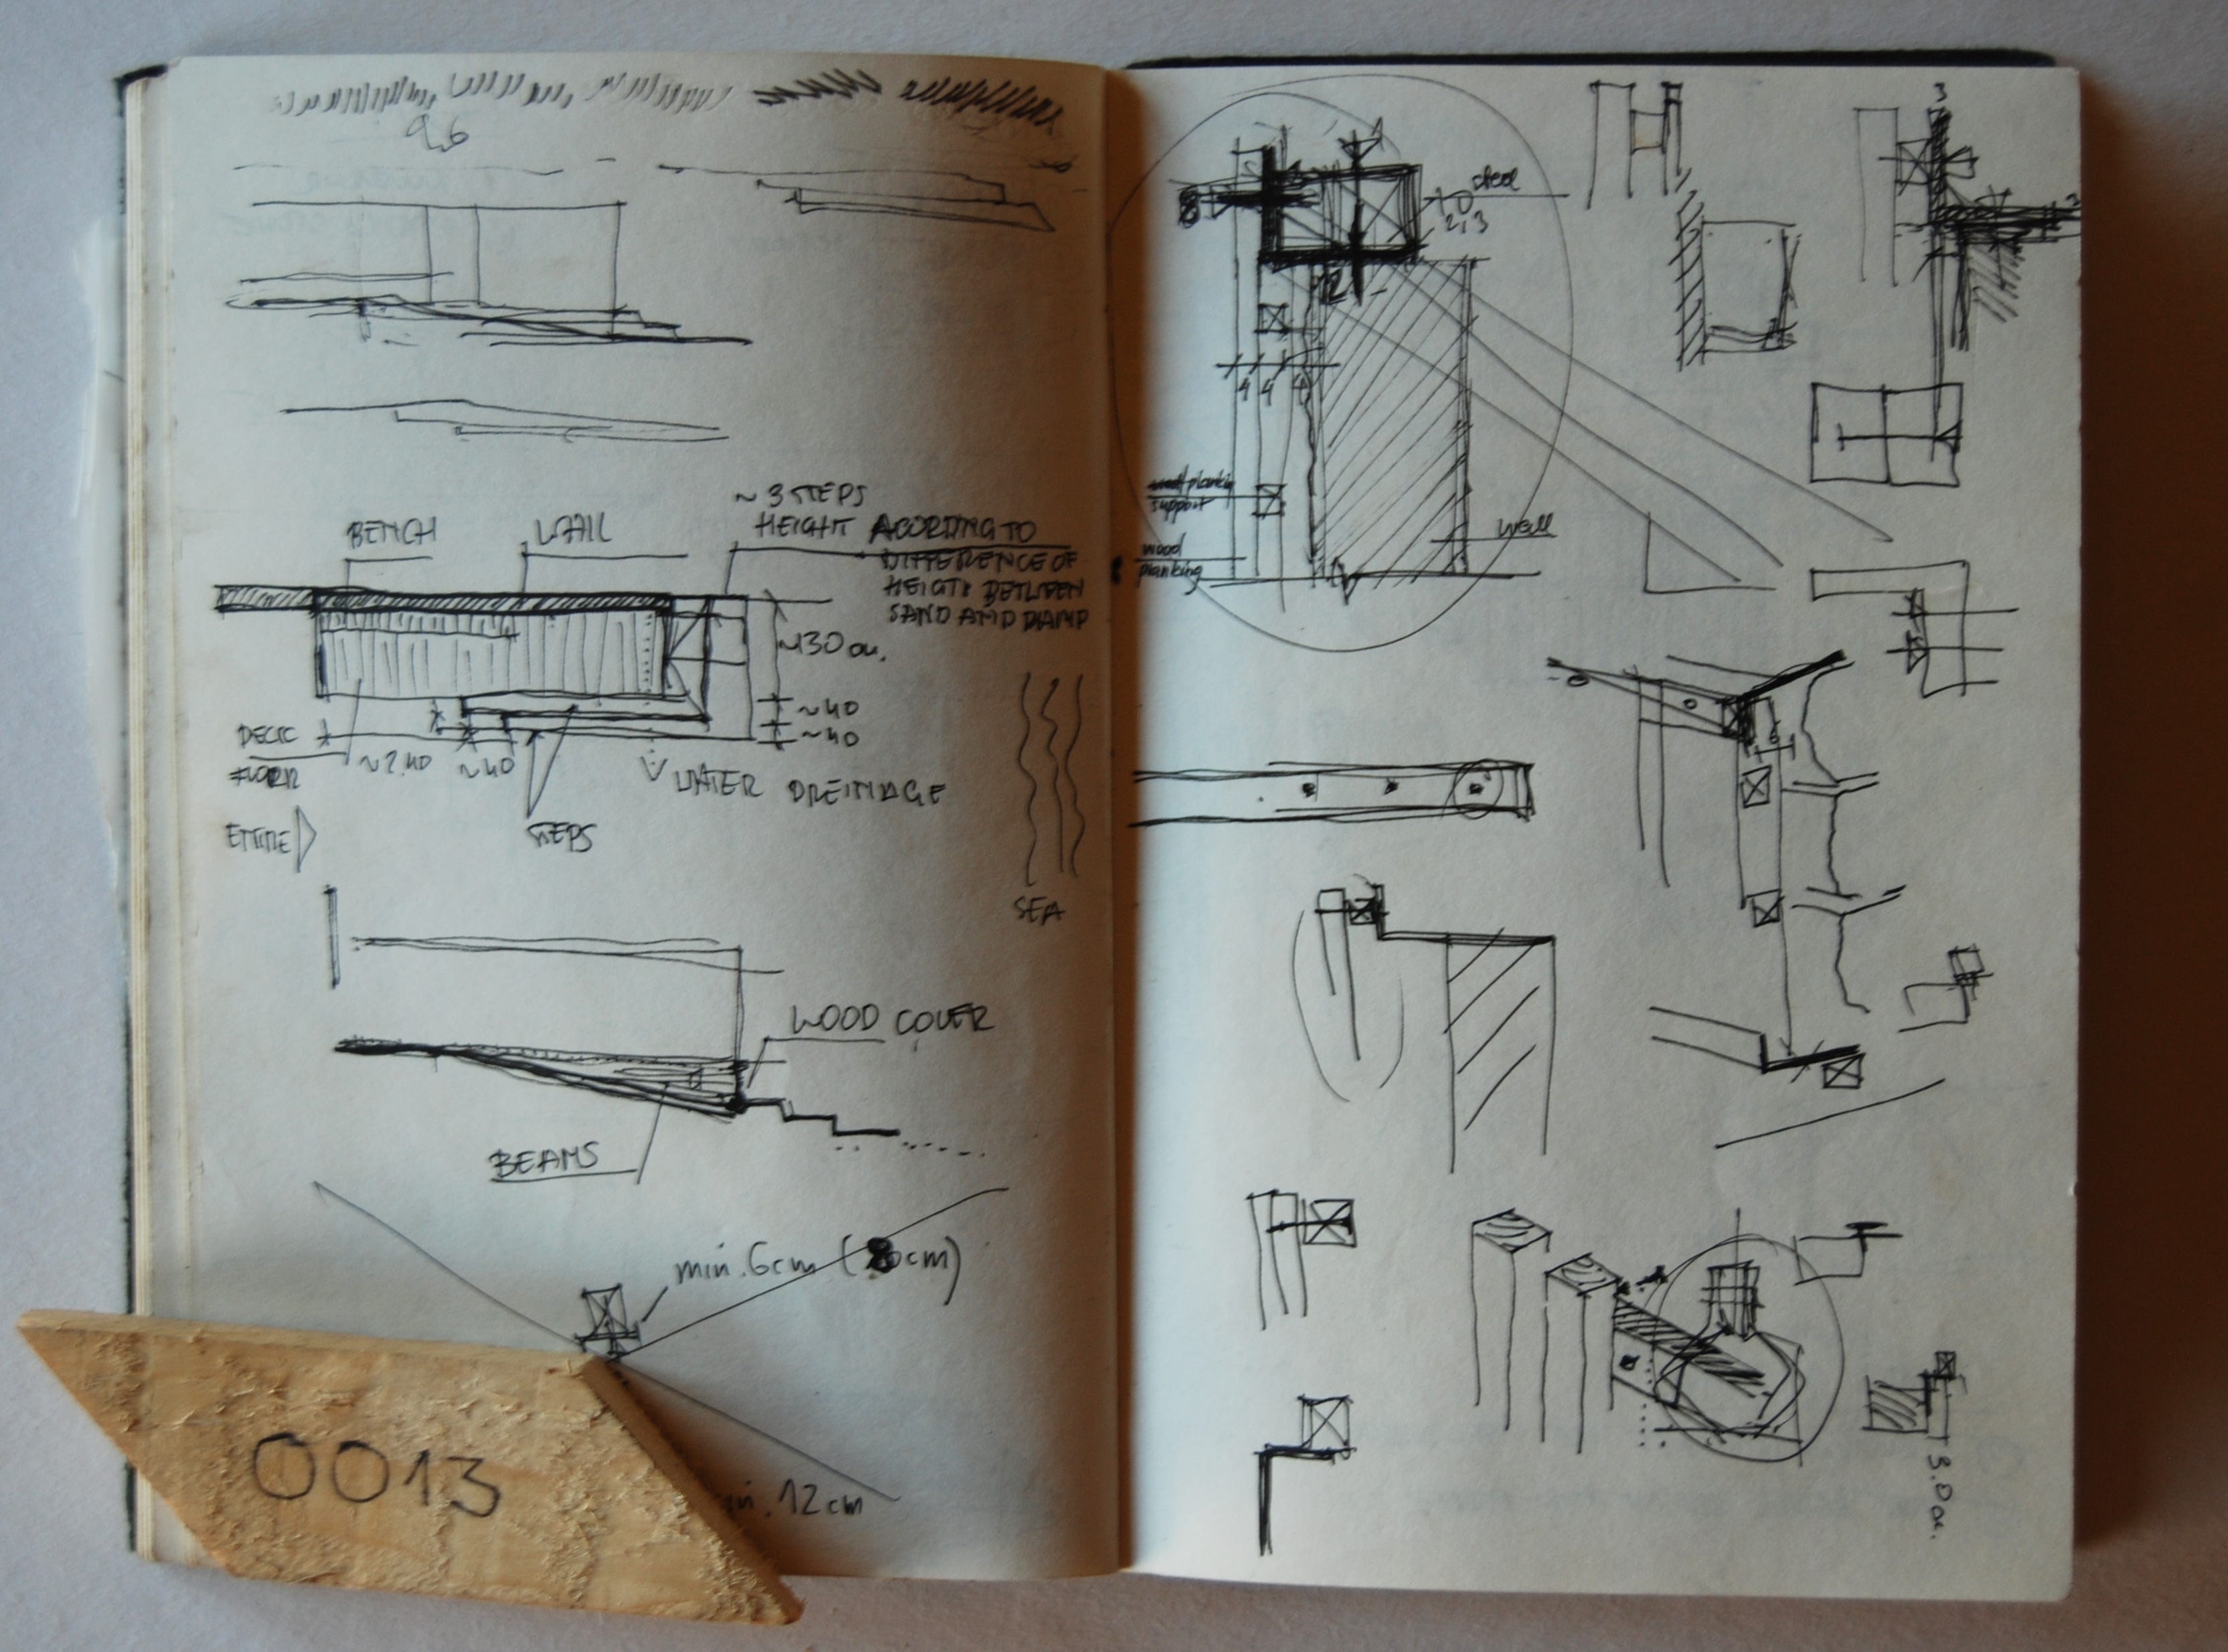 9,6
BENCH
WALL
~ 3 STEPS
HEIGHT ACORDING TO
DIFFERENCE OF
HEIGTH BETWEEN
SAND AND RAMP
~130 cm.
~40
~40
DECK
~2.40
~40
WATER DREINAGE
STEPS
SEA
WOOD COVER
BEAMS
min.6cm (8cm)
12cm
0013
8
steel
10
2,3
12
4 4
wood planking
support
wood
planking
wall
3
3
3.0 cm.